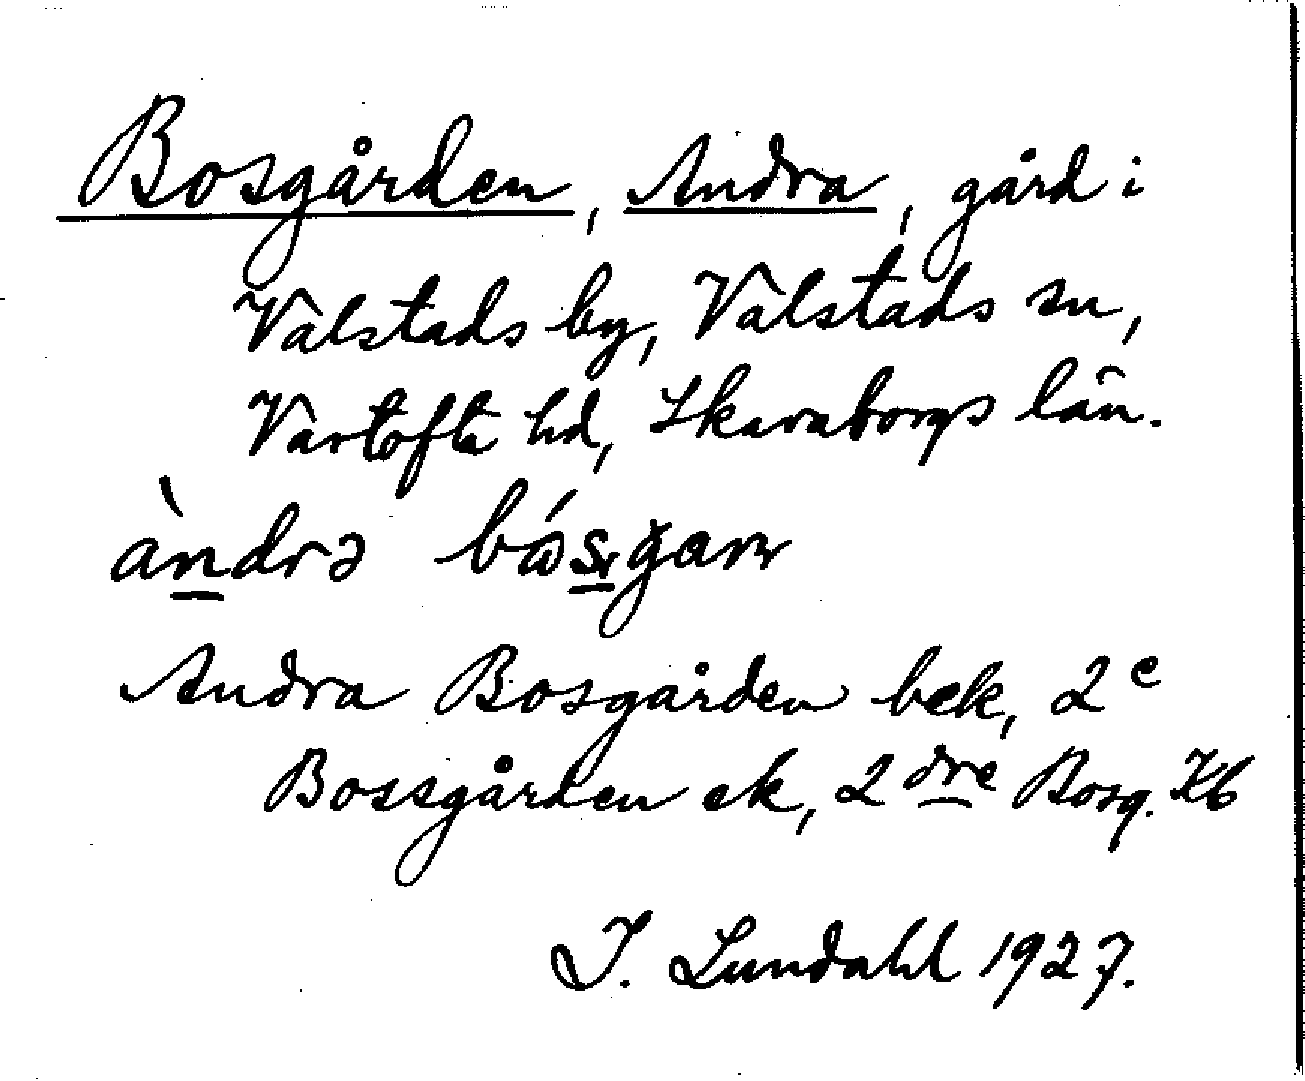 Bosgården, Andra, gård i
Valstads by, Valstads sn,
Vartofta hd, Skaraborgs län.
àndrə
Andra Bosgården bek, 2e
Bossgården ek, 2dre Bosg. Kb
I. Lundahl 1927.